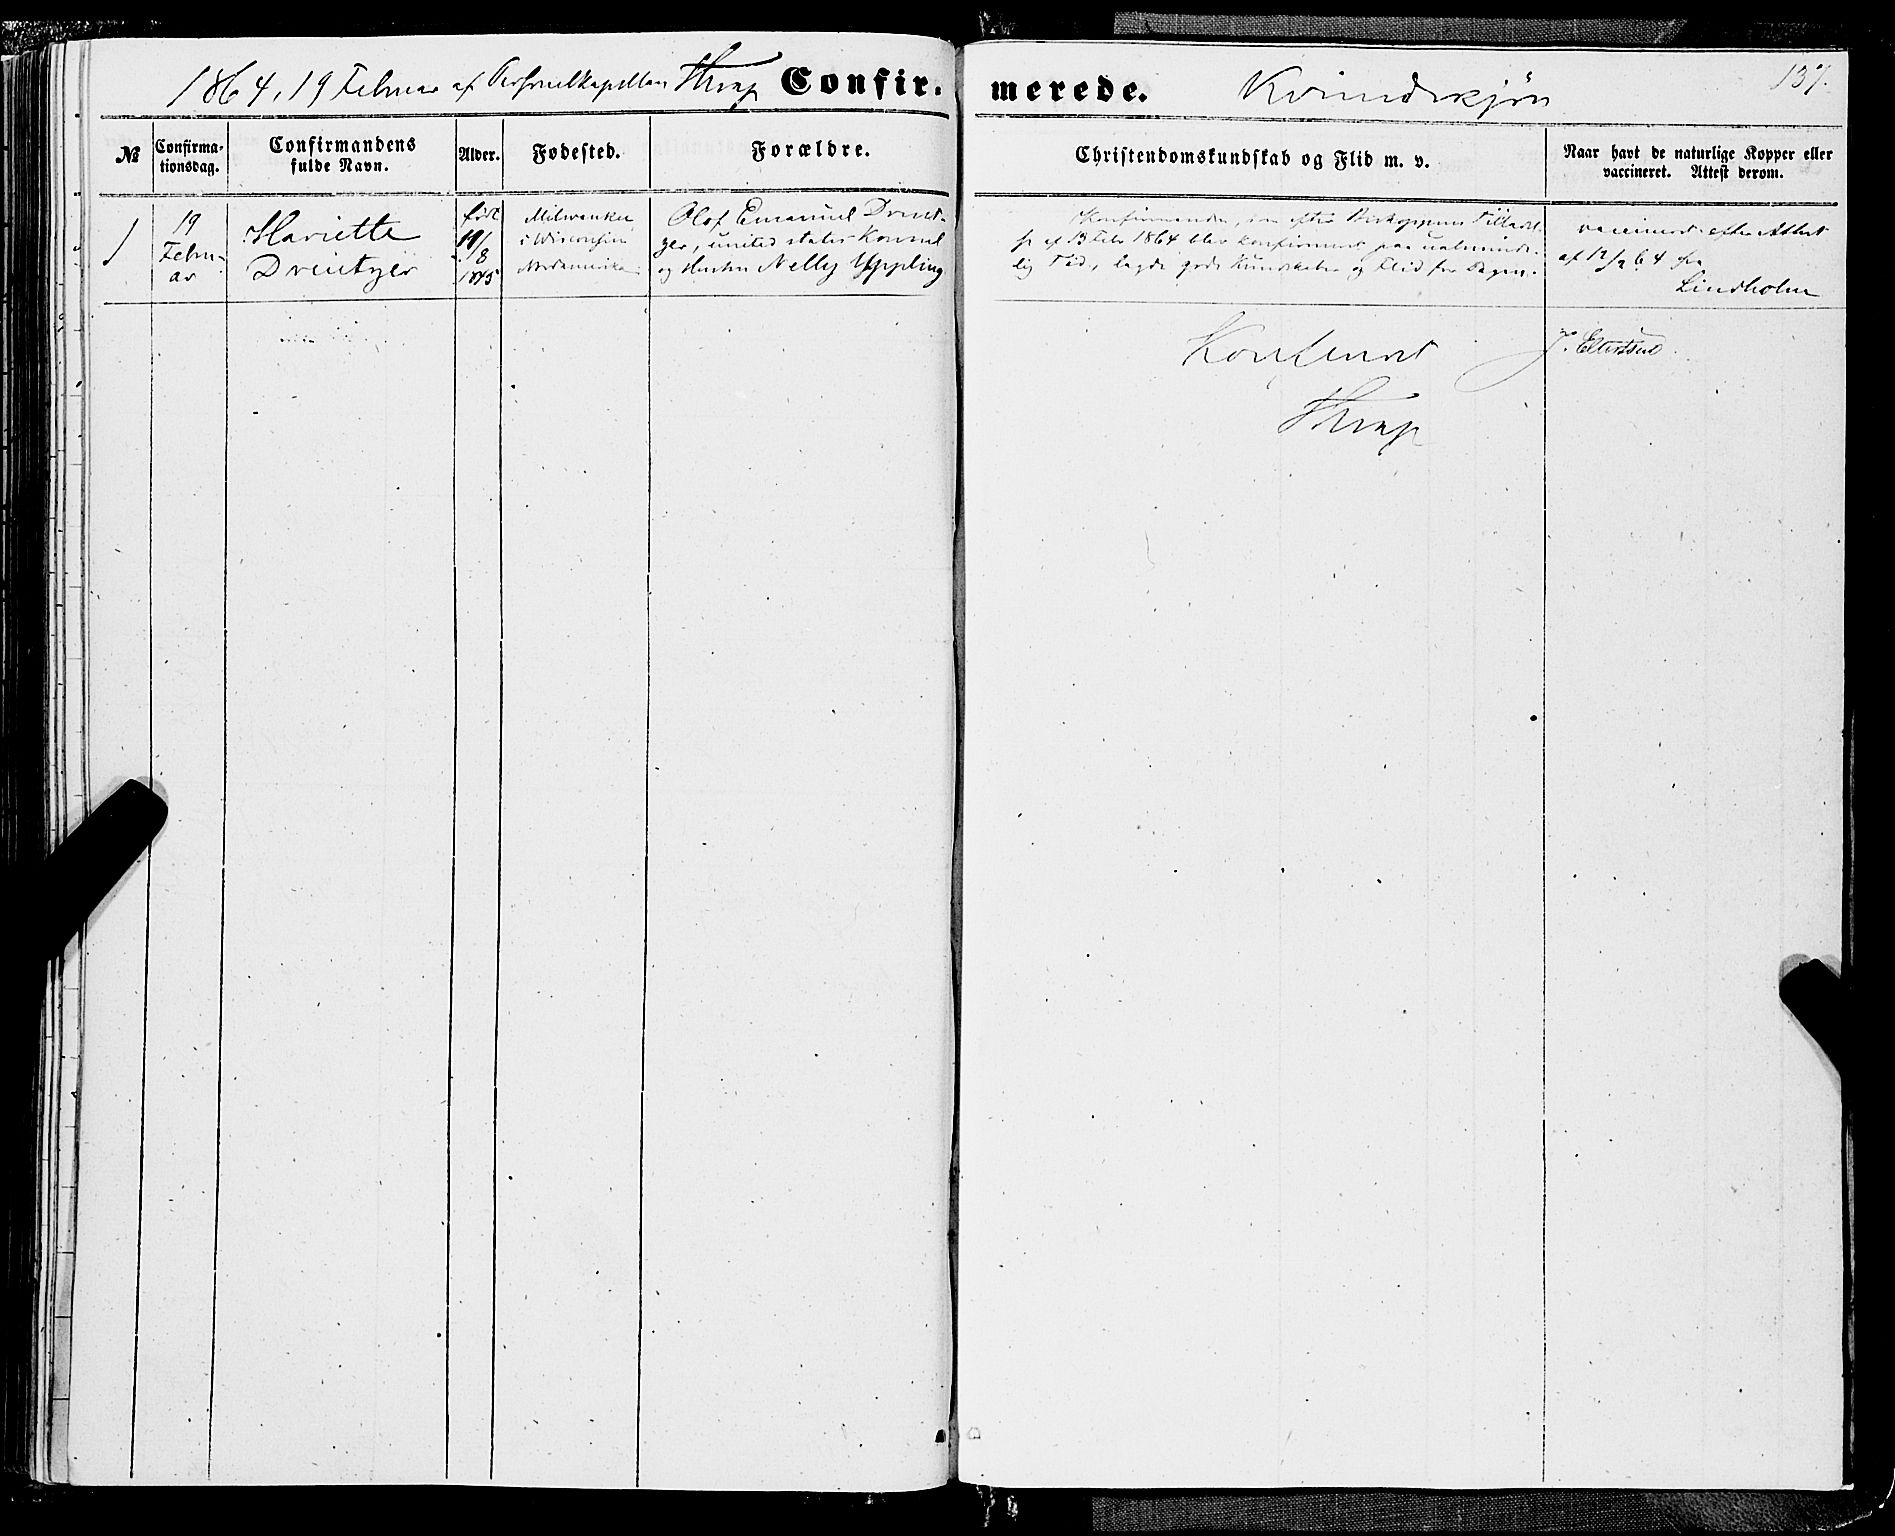 1864, 19 Februar af Personelkapellan Strup Confir-
merede. Kvindekjön
137.
№ Confirma-
tionsdag. Confirmandens
fulde Navn. Alder. Fødested. Forældre. Christendomskundskab og Flid m. v. Naar havt de naturlige Kopper eller
vaccineret. Attest derom.
1 19
Febru-
ar
Hariette
Dreutzer
født
19/8
1845
Milwaukee
i Wisconsin
Nordamerika
Olof Emanuel Dreut-
zer, united states Konsul
og Hustru Nelly Uppling
Konfirmanden, som efter Biskoppens Tilladel-
se af 13 Febr 1864 blev konfirmeret paa ualminde-
lig Tid, lagde gode Kundskaber og Flid for Dagen.
vaccineret efter Attest
af 12/2 64 fra
Lindholm
Konfereret
Strup